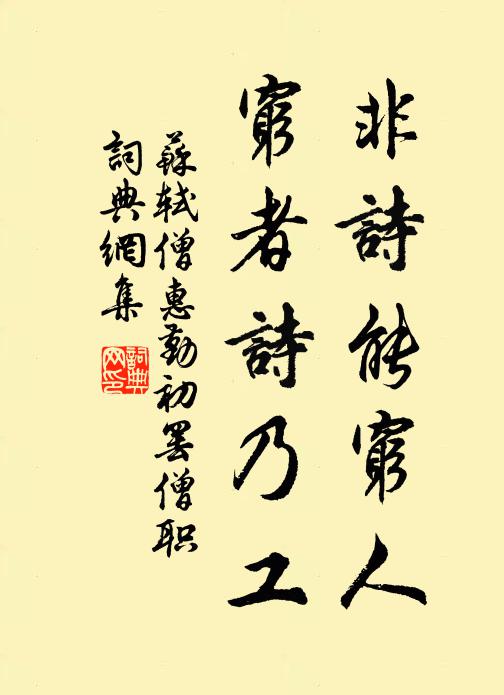 非詩能窮人
窮者詩乃工
蘇軾僧惠勤初罢僧职
詞典網集
詞典
网印